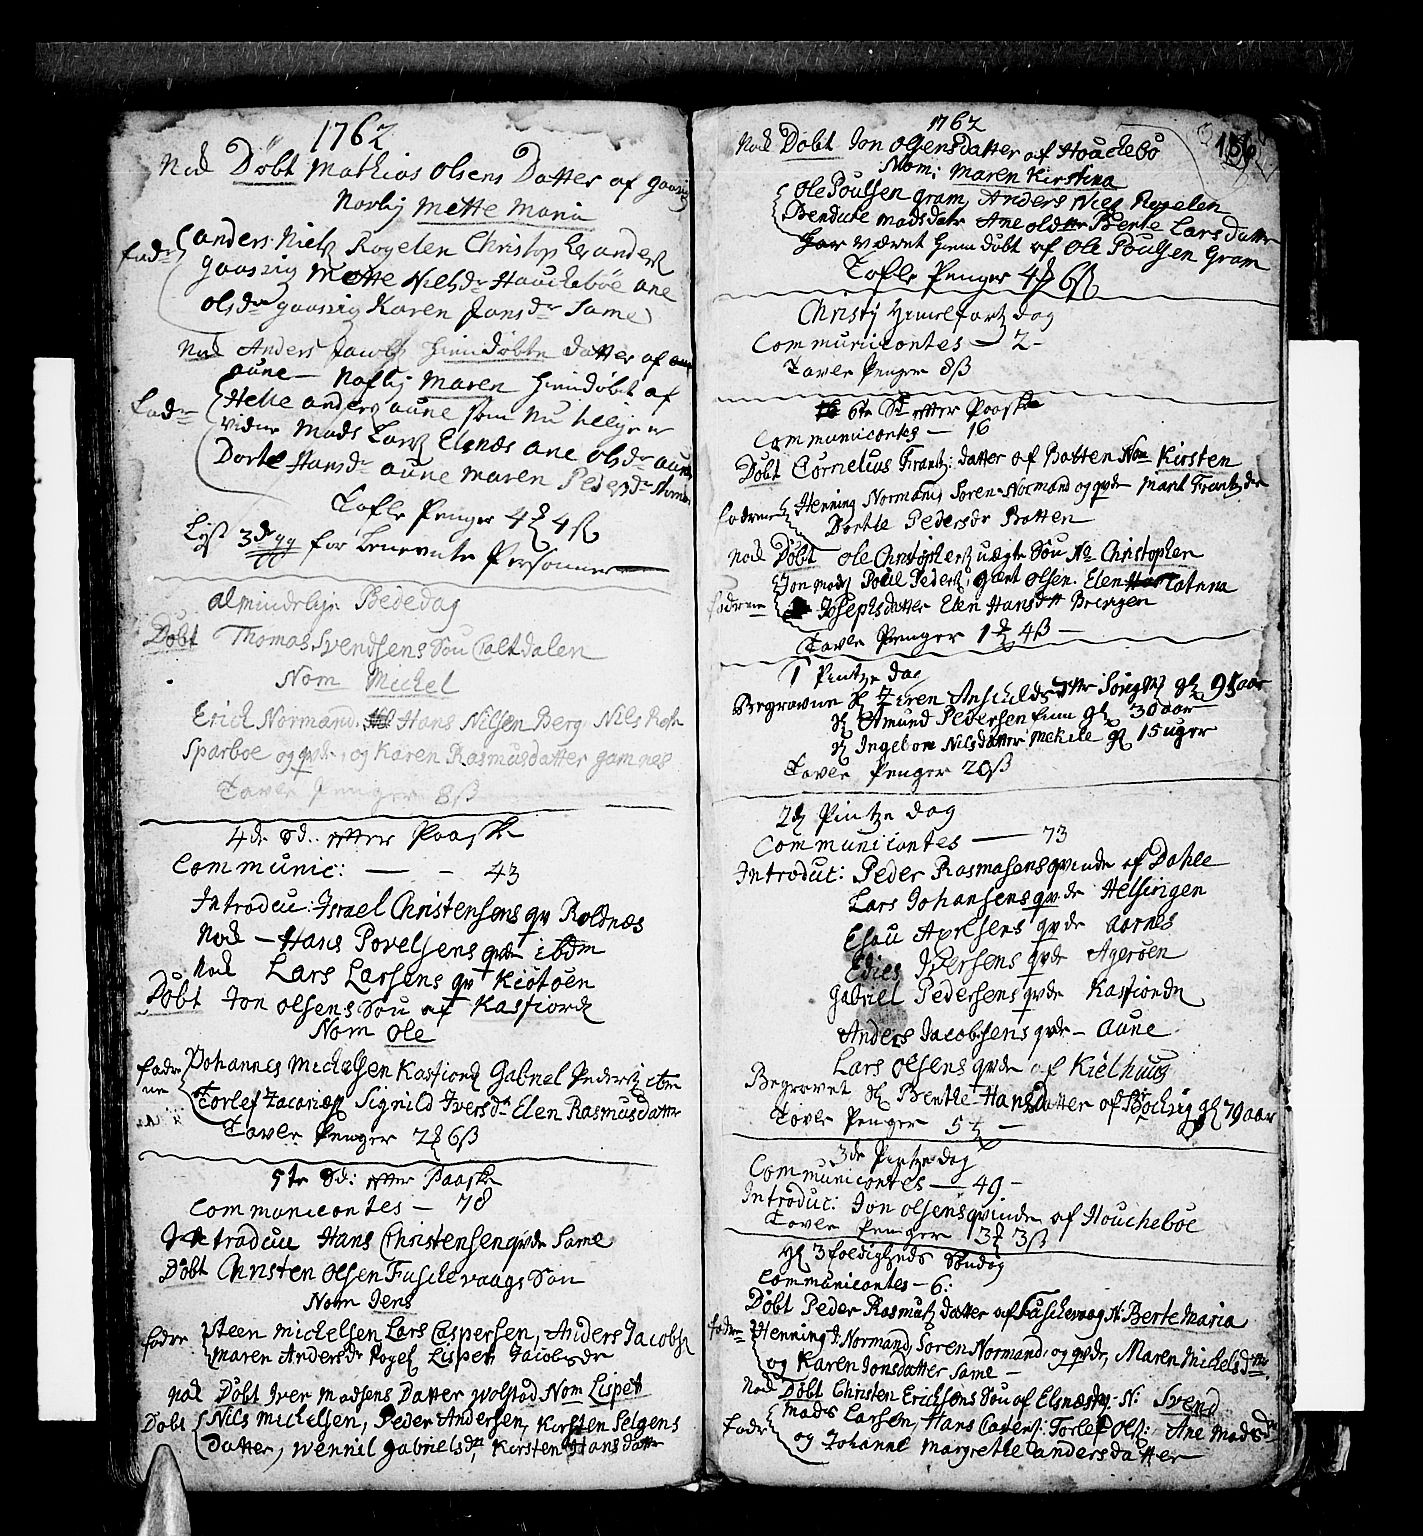 1762
Nok Døbt Mathias Olsens Datter af gaasvig
Navlig Mette Maria
fadr anders Nielß Rogelen Christopher anderß
gaasvig Mette Nielsdr Houchebøe ane
olsdr gaasvig Karen Jonsdr Same
Nok Anders Jacobß Hiemdøbte datter af
aune — Naflig Maren hiemdøbt af
fadr Helle anderß aune som nu tillige er
vidne Mads Larß Elsnæs ane olsdr aune
Dorte Hansdr aune Maren Pedersdr
Tofle Penger 4 ℥ 4 ß
Lyst 3de gg for benevnte Personner
almindelige Bededag
Døbt Thomas Svendsens Søn Caltdalen
Nom Michel
Erich Normand. Hans Nilsen Berg. Nils
Sparboe og qvde, og Karen Rasmusdatter gamnes
Tavle Penger 8 ß
4de Sd. etter Paaske
Communic: — - 43
Introdcu: Israel Christensens qv Roldnæs
Nok — Hans Povelsens qvde ibdm
Nok Lars Larsens qv Kiøtøen
Døbt Jon olsens Søn af Kasfiord
Nom Ole
fadre Johannes Michelsen Kasfiord Gabriel Pederß
ne Torlef Zacariæß Signild Iversdr Elen Rasmusdatter
Tavle Penger 2 ℥ 6 ß
5te Sd: etter Paaske
Communicantes — 78
Introdcu Hans Christensen qvde Same
Døbt Christen Olsen Fuschevaags Søn
Nom Jens
fadre Steen Michelsen Lars Caspersen, Anders Jacobß
Maren Andersdr Lispet Jacobsdr
Nok Døbt Iver Madsens Datter Wolstad Nom Lispet
Døbt Nils Michelsen, Peder Andersen, Kirsten Selgens
Datter, Wennil Gabrielsdtr, Kirsten Hansdatter
1762
186
Nok Døbt Jon Olsens datter af Houchebø
Nom: Maren Kirstina
Ole Poulsen Gram, Anders Niels Rogelen
Bendicte Madsdatr Ane oldttr Berte Larsdatter
har været hiemdøbt af Ole Poulsen Gram
Tofle Penger 4 ℥ 6 ß
Christi Himelfartz dag
Communicantes — 2 -
Tavle Penger 8 ß
6te Sd etter Paaske
Communicantes — 16
Døbt Cornelius Frantz: datter af Botten Nom Kirsten
fadrene Henning Normand, Søren Normand og qvde Marit Frantzdr
Dorthe Pedersdr Botten
Nok Døbt Ole Christophers uægte Søn No Christopher
fadrene Jon Madß Poul Pederß, Olsen. Elen Catrina
Josephsdatter Elen Hansdtt Breivigen
Tavle Penger 1 ℥ 4 ß —
1 Pintze dag
Begravne Anschildsdttr 95 aar
Amund Pedersen 30 aar
Ingebore Nilsdatter 15 uger
Tavle Penger 20 ß
2den Pintze dag
Communicantes — 73
Introduc: Peder Rasmasens qvinde af Dahle
Lars Johansens qvde Helsingen
Esau Axelsens qvde aarnes
Edies Iversens qvde Agerøen
Gabriel Pedersens qvde Kasfiorden
Anders Jacobsens qvde — Aune
Lars Olsens qvde af Kielhuus
Begravet Berthe Hansdatter af Bochvig 79 aar
Tavle Penger 5 ℥ —
3de Pintze dag
Communicantes — 49 -
Introduc: Jon Olsens qvinde af Houcheboe
Tavle Penger 3 ℥ 3 ß
3foldigheds Søndag
Communicantes — 6:
Døbt Peder Rasmusß datter af Fuschevaag N. Berte Maria
fadrne Henning J. Normand, Søren Normand, og qvde, Maren Michelsdttr
og Karen Jonsdatter Same —
Nok Døbt Christen Ericksens Søn af Elsnæs N: Svend
fadr Mads Larsen, Hans Torlef Olß: Ane Madsdtr
og Johanne Margrethe andersdatter